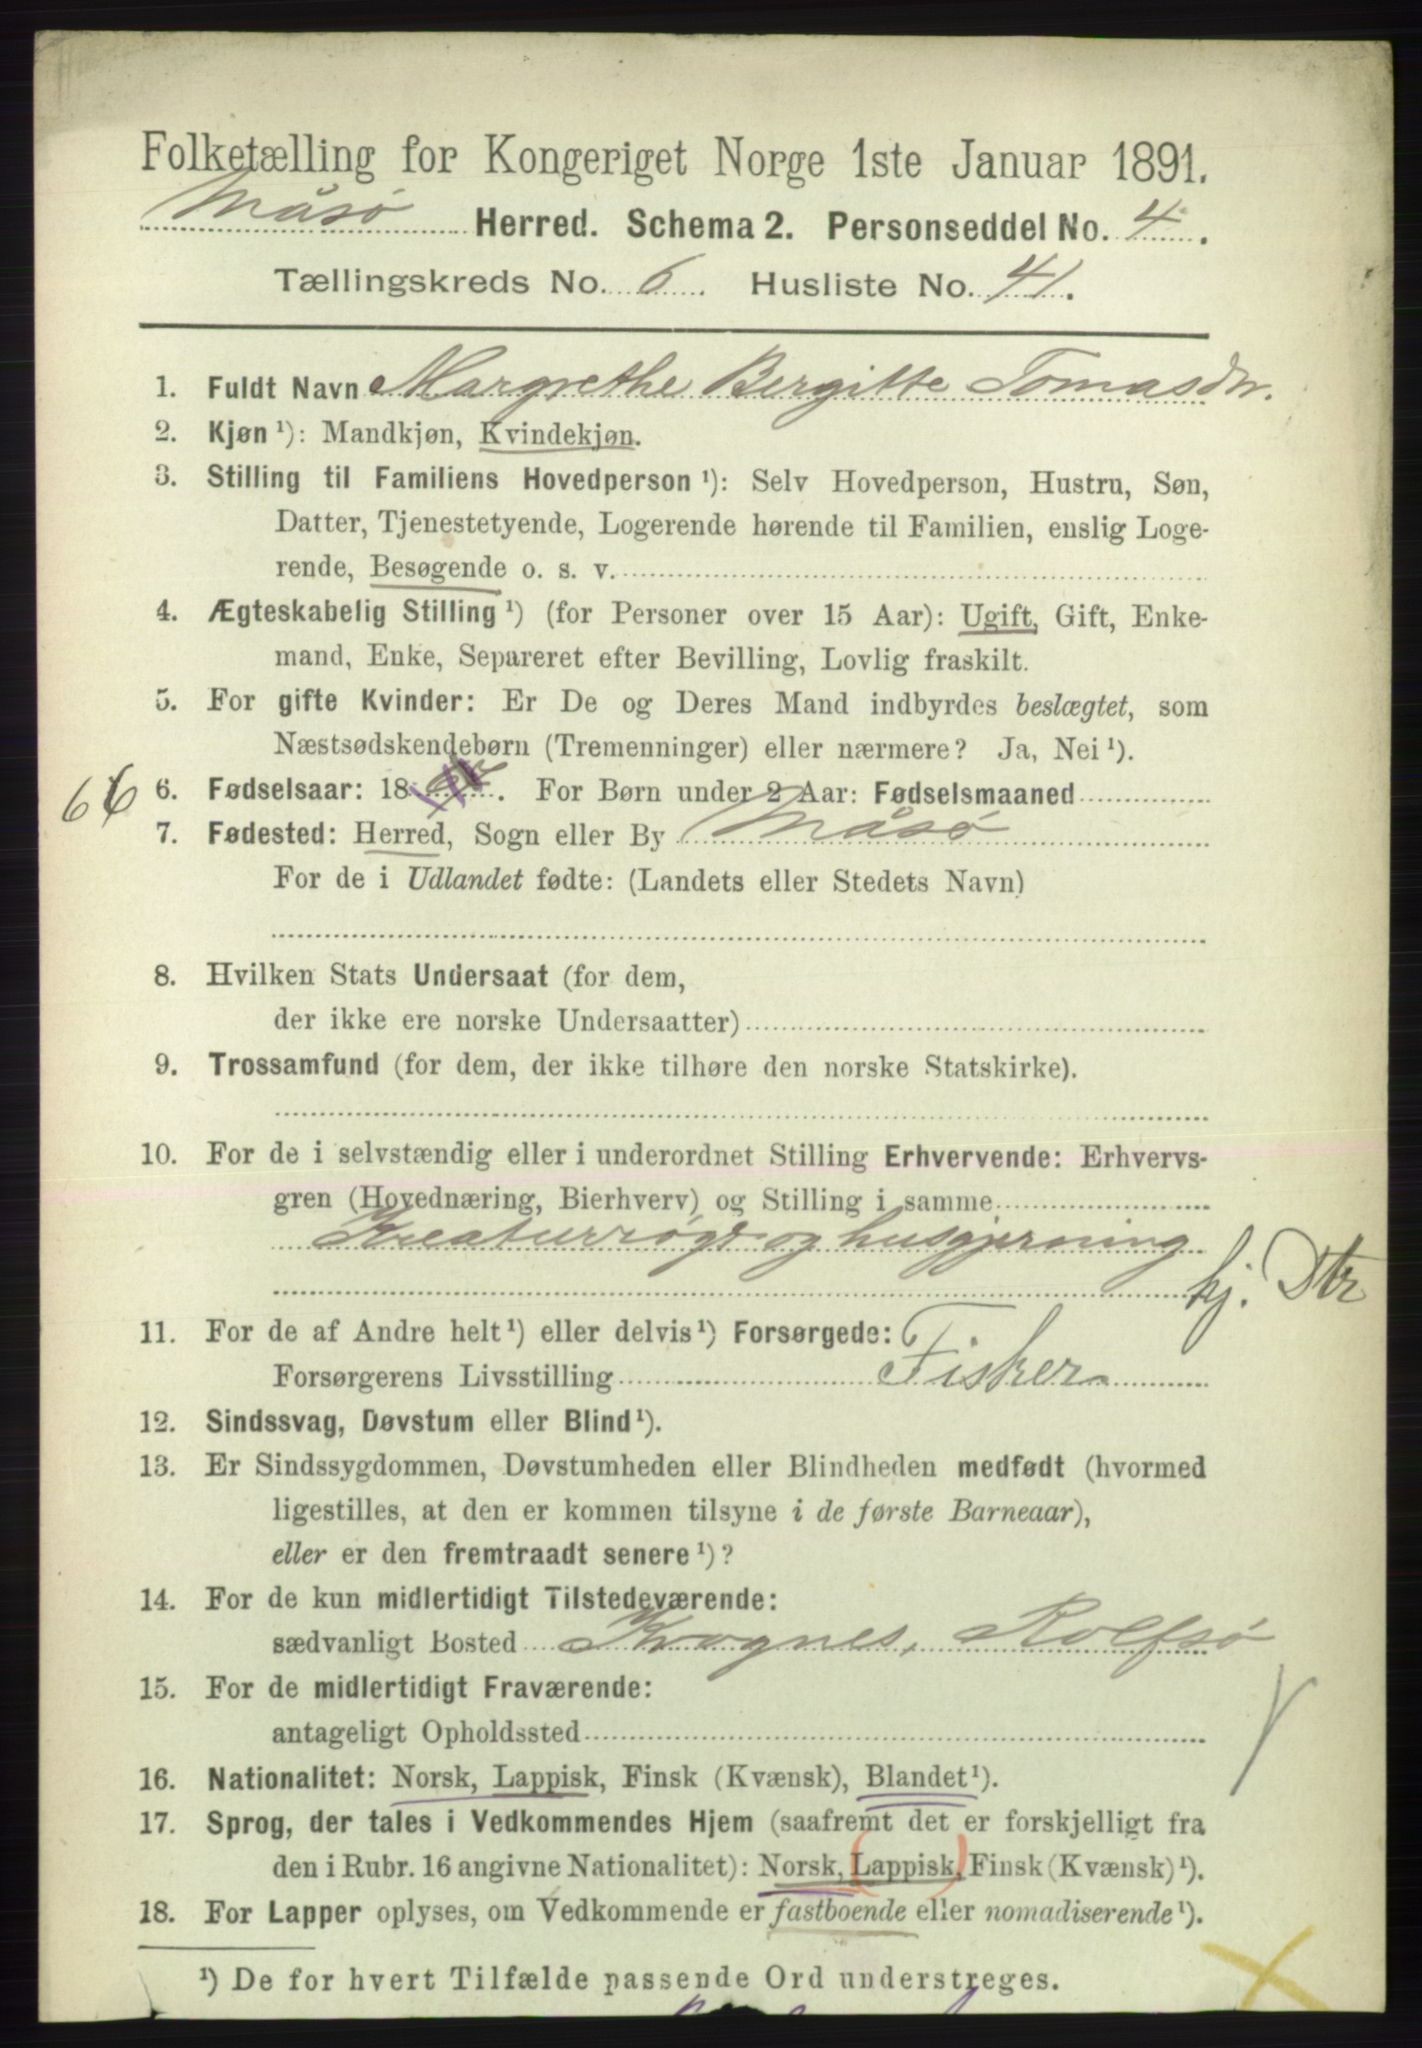 Folketælling for Kongeriget Norge 1ste Januar 1891.
Måsø Herred. Schema 2. Personseddel No. 4.
Tællingskreds No. 6. Husliste No. 41.
1. Fuldt Navn Margrethe Bergitte Tomasdtr.
2. Kjøn ¹): Mandkjøn, Kvindekjøn.
3. Stilling til Familiens Hovedperson ¹): Selv Hovedperson, Hustru, Søn,
Datter, Tjenestetyende, Logerende hørende til Familien, enslig Loge-
rende, Besøgende o. s. v.
4. Ægteskabelig Stilling ¹) (for Personer over 15 Aar): Ugift, Gift, Enke-
mand, Enke, Separeret efter Bevilling, Lovlig fraskilt.
5. For gifte Kvinder: Er De og Deres Mand indbyrdes beslægtet, som
Næstsødskendebørn (Tremenninger) eller nærmere? Ja, Nei ¹).
66 6. Fødselsaar: 18 . For Børn under 2 Aar: Fødselsmaaned
7. Fødested: Herred, Sogn eller By Måsø
For de i Udlandet fødte: (Landets eller Stedets Navn)
8. Hvilken Stats Undersaat (for dem,
der ikke ere norske Undersaatter)
9. Trossamfund (for dem, der ikke tilhøre den norske Statskirke).
10. For de i selvstændig eller i underordnet Stilling Erhvervende: Erhvervs-
gren (Hovednæring, Bierhverv) og Stilling i samme
Kreaturrøgt og husgjerning
hj. Dtr
11. For de af Andre helt ¹) eller delvis ¹) Forsørgede:
Forsørgerens Livsstilling Fisker
12. Sindssvag, Døvstum eller Blind ¹).
13. Er Sindssygdommen, Døvstumheden eller Blindheden medfødt (hvormed
ligestilles, at den er kommen tilsyne i de første Barneaar),
eller er den fremtraadt senere ¹)?
14. For de kun midlertidigt Tilstedeværende:
sædvanligt Bosted Krognes, Rolfsø
15. For de midlertidigt Fraværende:
antageligt Opholdssted
16. Nationalitet: Norsk, Lappisk, Finsk (Kvænsk), Blandet ¹).
17. Sprog, der tales i Vedkommendes Hjem (saafremt det er forskjelligt fra
den i Rubr. 16 angivne Nationalitet): Norsk, Lappisk, Finsk (Kvænsk) ¹).
18. For Lapper oplyses, om Vedkommende er fastboende eller nomadiserende ¹).
¹) De for hvert Tilfælde passende Ord understreges.